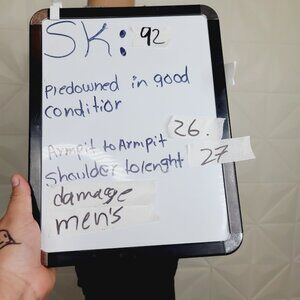 SK: 92
Predowned in good
condition
Armpit to Armpit 26.
Shoulder to lenght 27
damage
men's